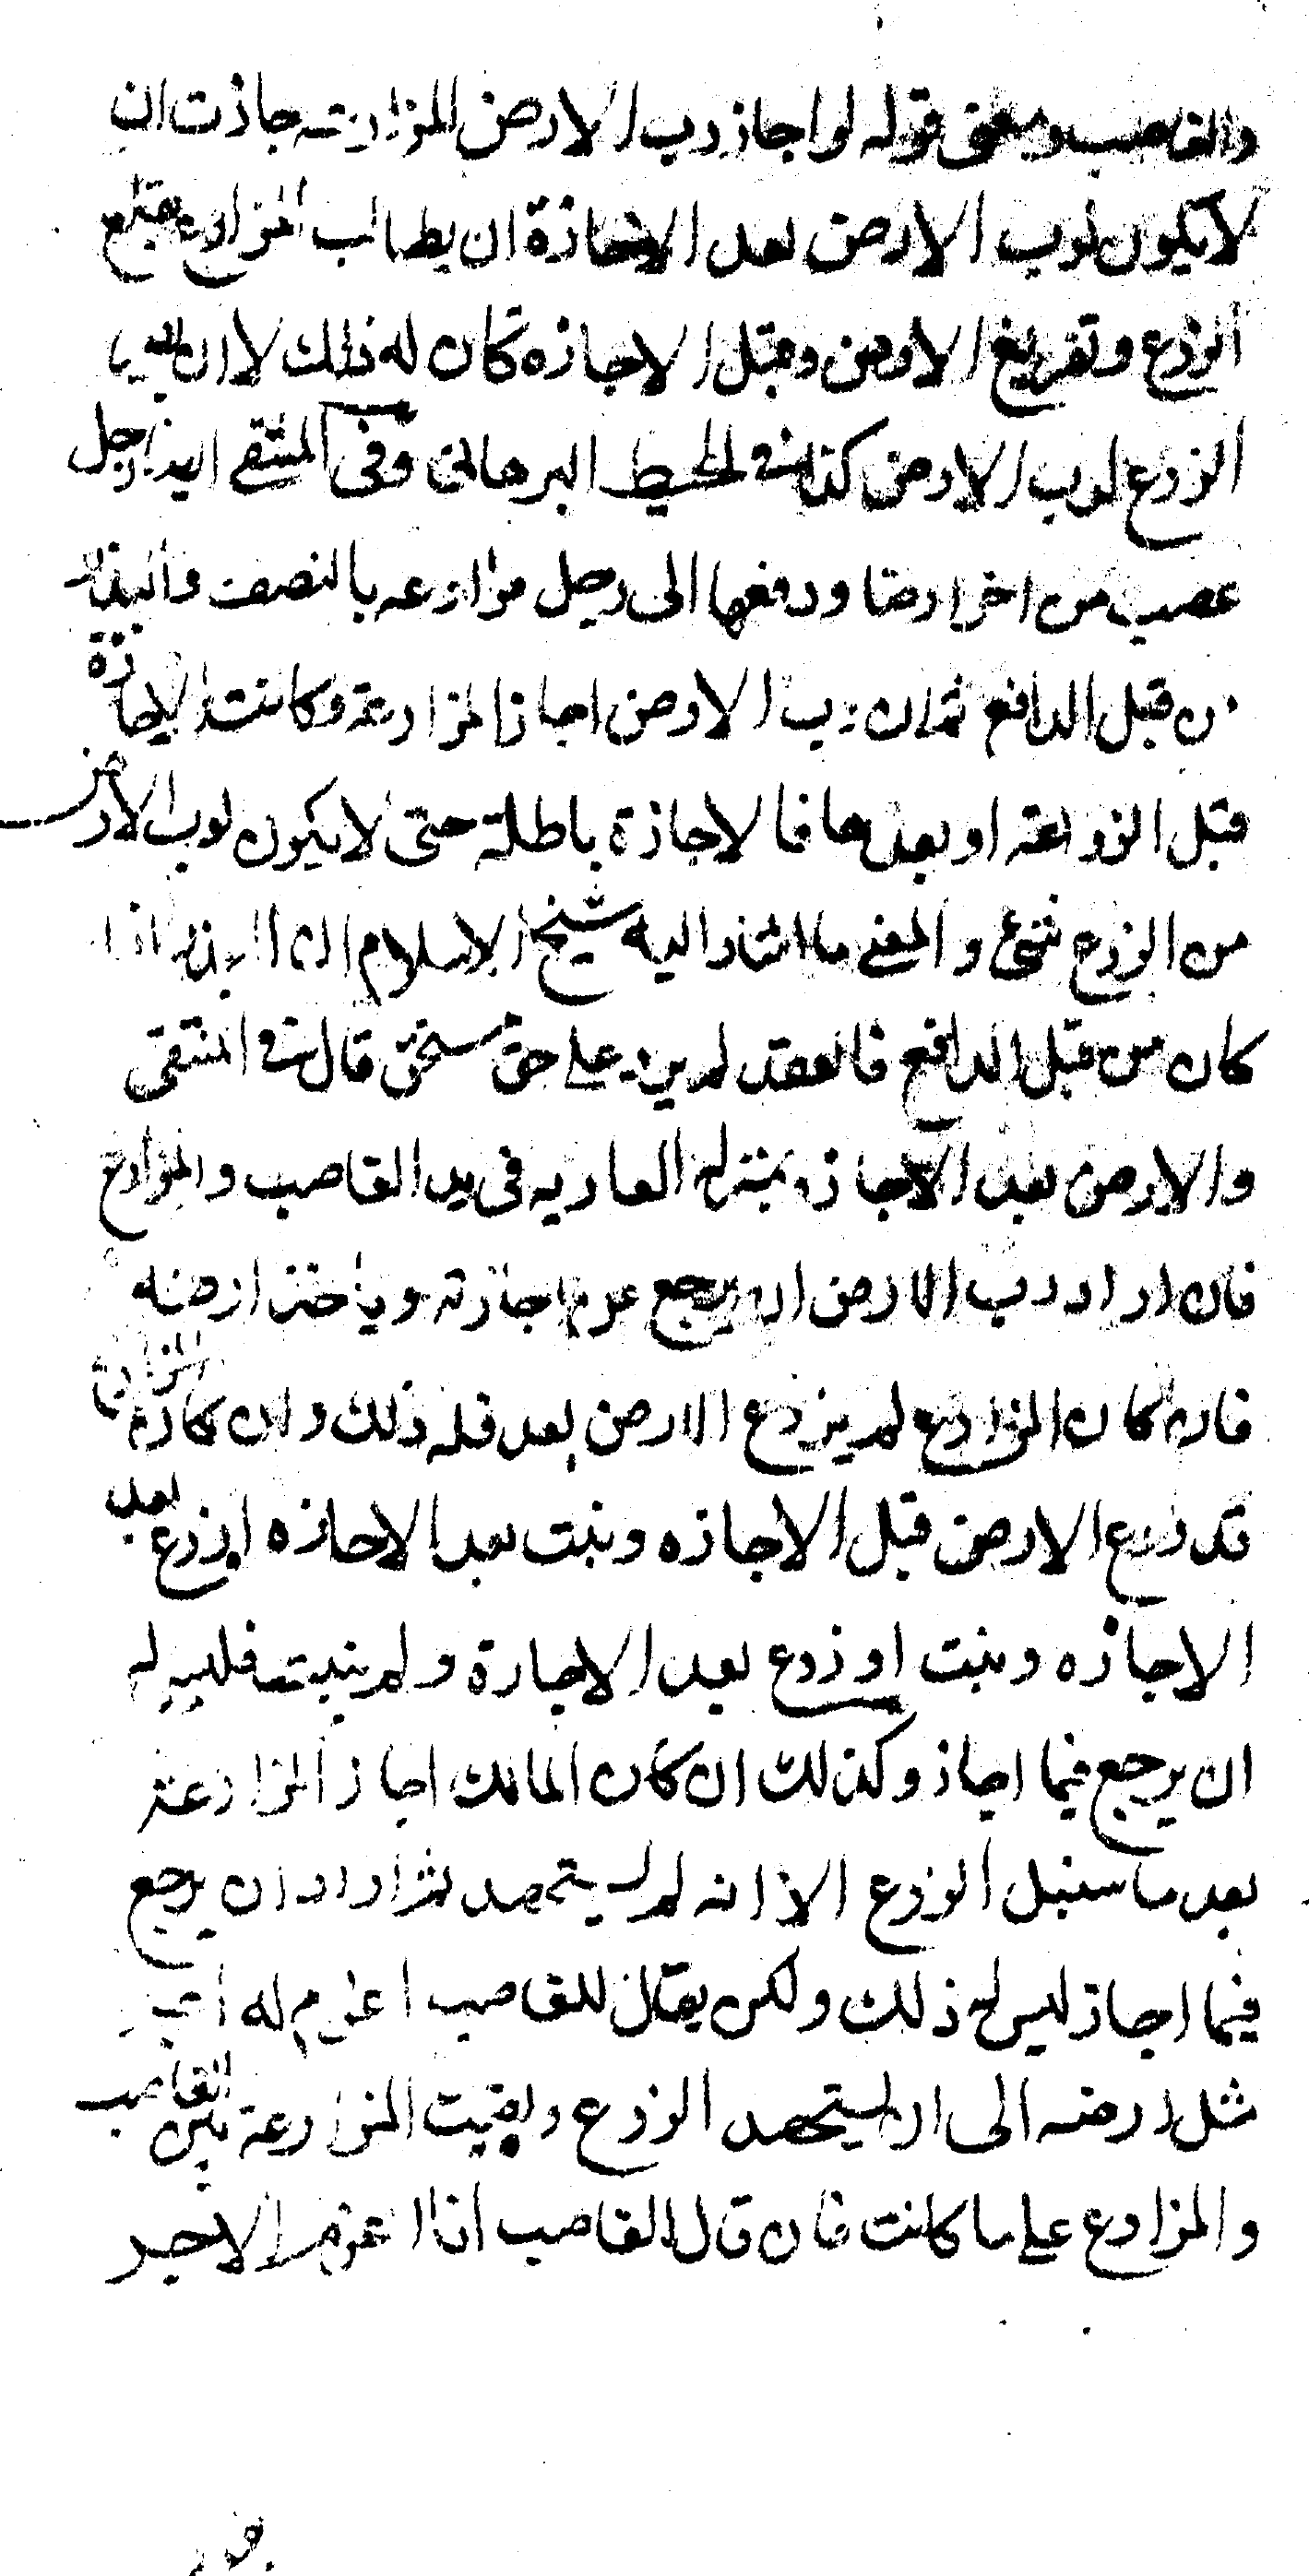 والغاصب ومعنى قوله لو اجاز رب الارض المزارعة جازت ان
لا يكون لرب الارض بعد الاجازة ان يطالب المزارع بقلع
الزرع وتفريغ الارض وقبل الاجازه كان له ذلك لا ان
الزرع لرب الارض كذا في المحيط البرهاني وفي المنتقى ايضا رجل
غصب من اخر ارضا ودفعها الى رجل مزارعه بالنصف والبذر
من قبل الدافع ثم ان رب الارض اجاز المزارعة وكانت الاجازة
قبل الزراعة او بعدها فالاجازة باطلة حتى لا يكون لرب الارض
من الزرع شيء والمعنى ما اشار اليه شيخ الاسلام ان البذر اذا
كان من قبل الدافع فالعقد لم يرد على حق مستحق قال في المنتقى
والارض بعد الاجازه بمنزلة العاريه في يد الغاصب والمزارع
فان اراد رب الارض ان يرجع عن اجازته وياخذ ارضه
فان كان المزارع لم يزرع الارض بعد فله ذلك وان كان المزارع
قد زرع الارض قبل الاجازه ونبت بعد الاجازه او زرع بعد
الاجازه ونبت او زرع بعد الاجازة ولم ينبت فليس له
ان يرجع فيما اجاز وكذلك ان كان المالك اجاز المزارعة
بعد ما سنبل الزرع الا انه لم يستحصد ثم اراد ان يرجع
فيما اجاز ليس له ذلك ولكن يقال للغاصب اغرم له اجر
مثل ارضه الى ان يستحصد الزرع وبقيت المزارعة بين الغاصب
والمزارع على ما كانت فان قال الغاصب انا اغرم الاجر